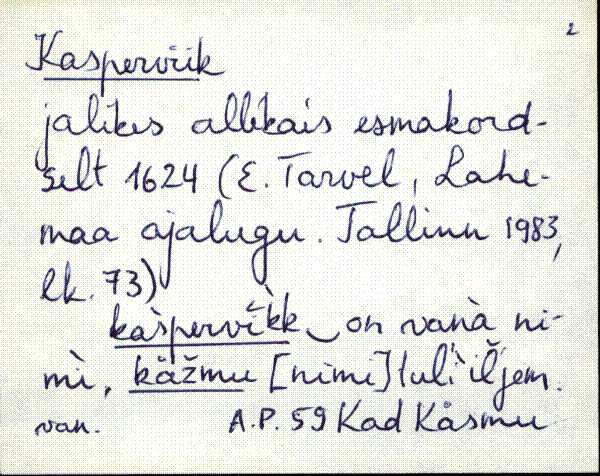 2
Kasperviik
jalikes allikais esmakord-
selt 1624 (E. Tarvel, Lahe-
maa ajalugu. Tallinn 1983,
lk. 73)
kàspervìkk on vanà ni-
mì, käžmu [nimi] tuli iljem.
van. A.P. 59 Kad Käsmu